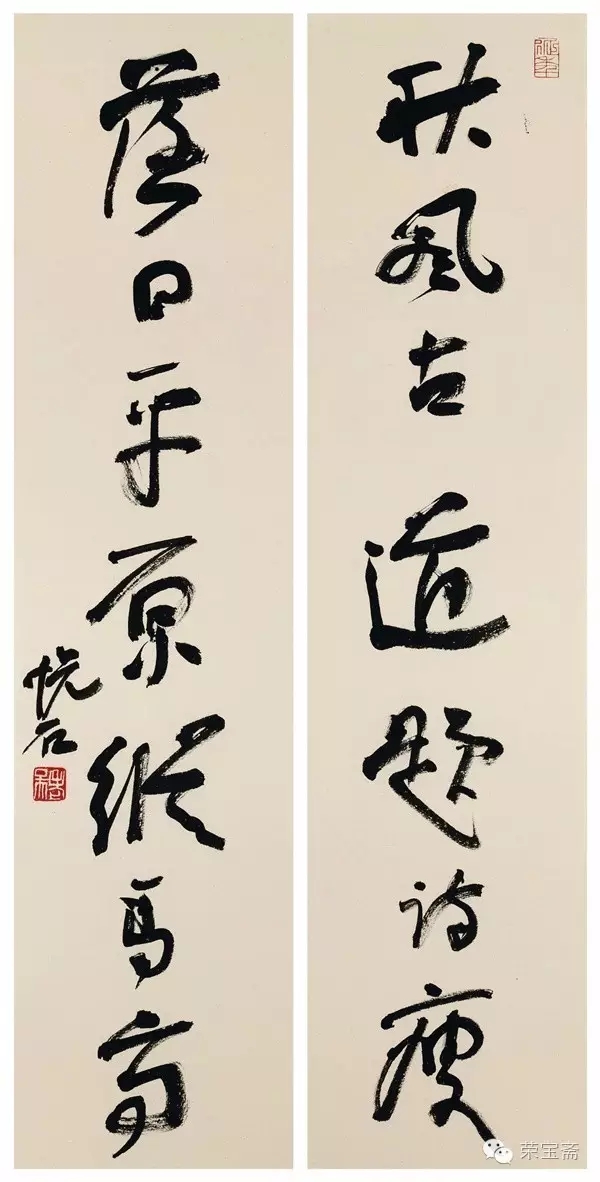 秋風古道題詩瘦
落日平原縱馬高
石
荣宝斋